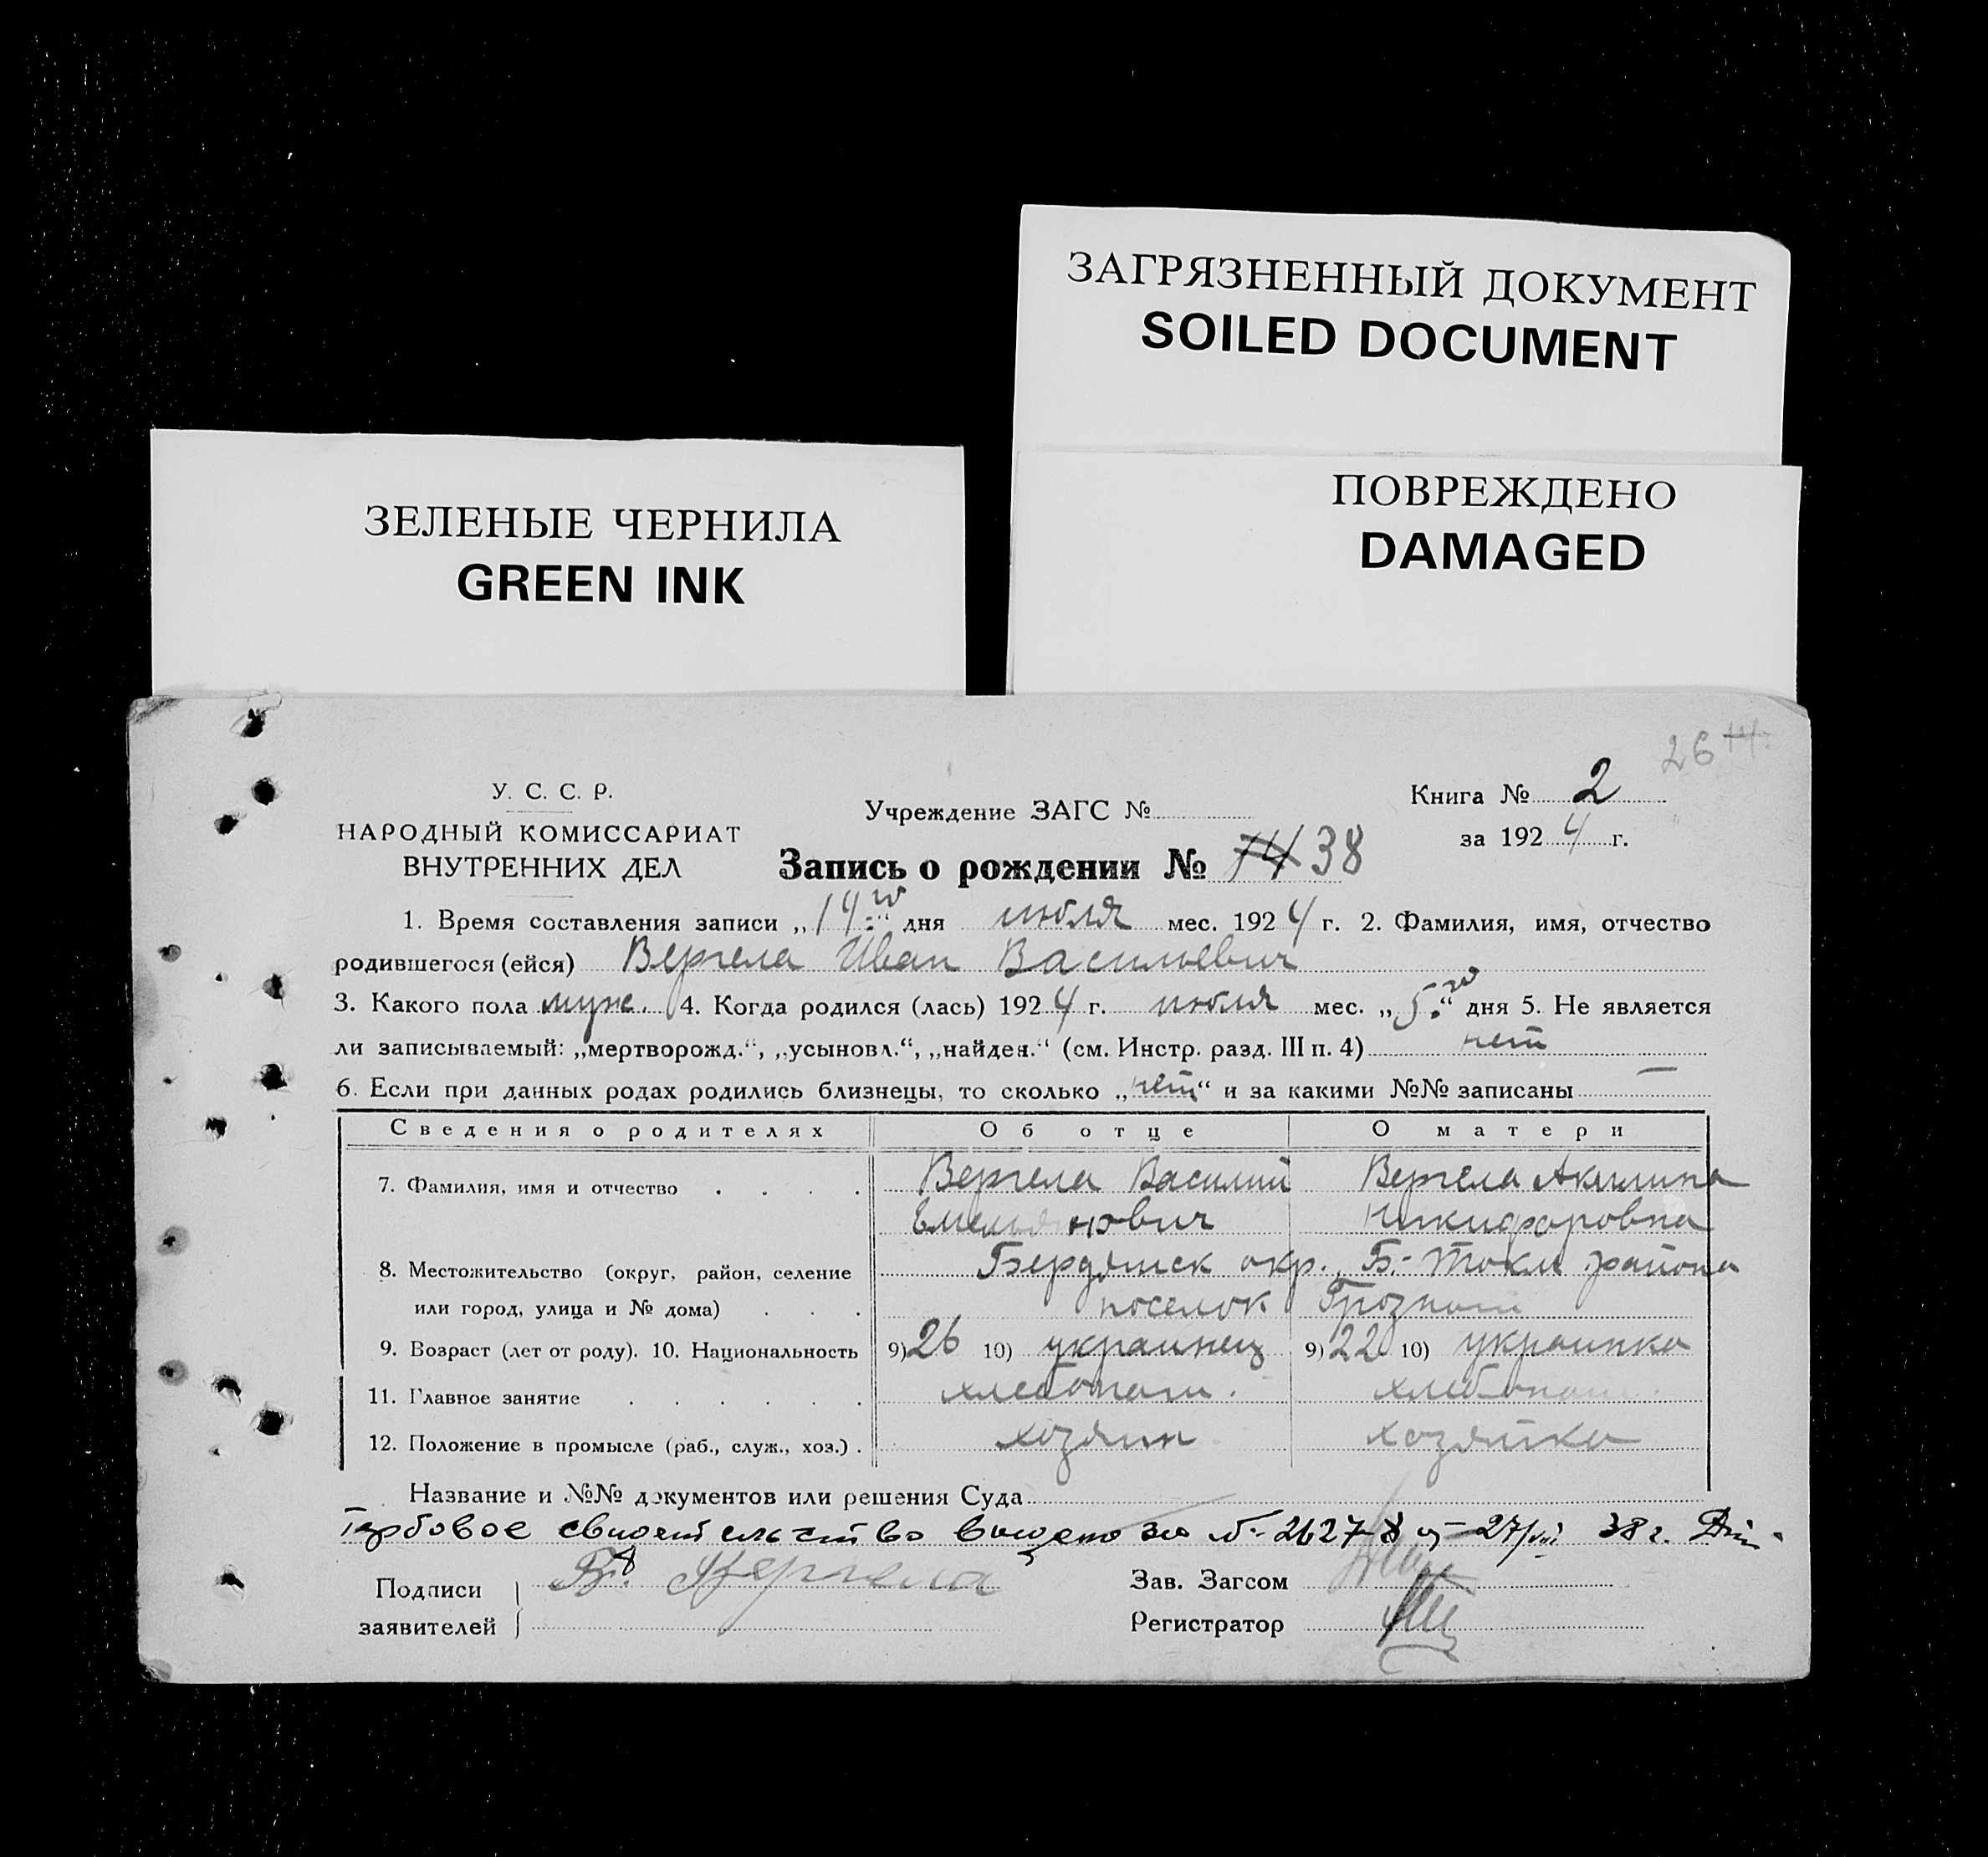 ЗАГРЯЗНЕННЫЙ ДОКУМЕНТ
SOILED DOCUMENT
ЗЕЛЕНЫЕ ЧЕРНИЛА
GREEN INK
ПОВРЕЖДЕНО
DAMAGED
26
У. С. С. Р.
НАРОДНЫЙ КОМИССАРИАТ
ВНУТРЕННИХ ДЕЛ
Учреждение ЗАГС №
Книга № 2
за 1924 г.
Запись о рождении № 74 38
1. Время составления записи „14го“ дня июля мес. 1924 г. 2. Фамилия, имя, отчество
родившегося (ейся) Вергела Иван Васильевич
3. Какого пола муж. 4. Когда родился (лась) 1924 г. июля мес. „5го“ дня 5. Не является
ли записываемый: „мертворожд.“, „усыновл.“, „найден.“ (см. Инстр. разд. III п. 4) нет
6. Если при данных родах родились близнецы, то сколько „нет“ и за какими №№ записаны —
Сведения о родителях Об отце О матери
7. Фамилия, имя и отчество . . . . Вергела Василий Вергела Акилина
Емельянович Никифоровна
8. Местожительство (округ, район, селение Бердянск окр., Б.-Токм района
или город, улица и № дома) . . . поселок
9. Возраст (лет от роду). 10. Национальность 9) 26 10) украинец 9) 22 10) украинка
11. Главное занятие . . . . . . хлебопаш. хлебопаш.
12. Положение в промысле (раб., служ., хоз.) . хозяин хозяйка
Название и №№ документов или решения Суда
Гербовое свидетельство выдано за № 2627 27/VIII 38 г.
Подписи В. Вергела
заявителей
Зав. Загсом
Регистратор